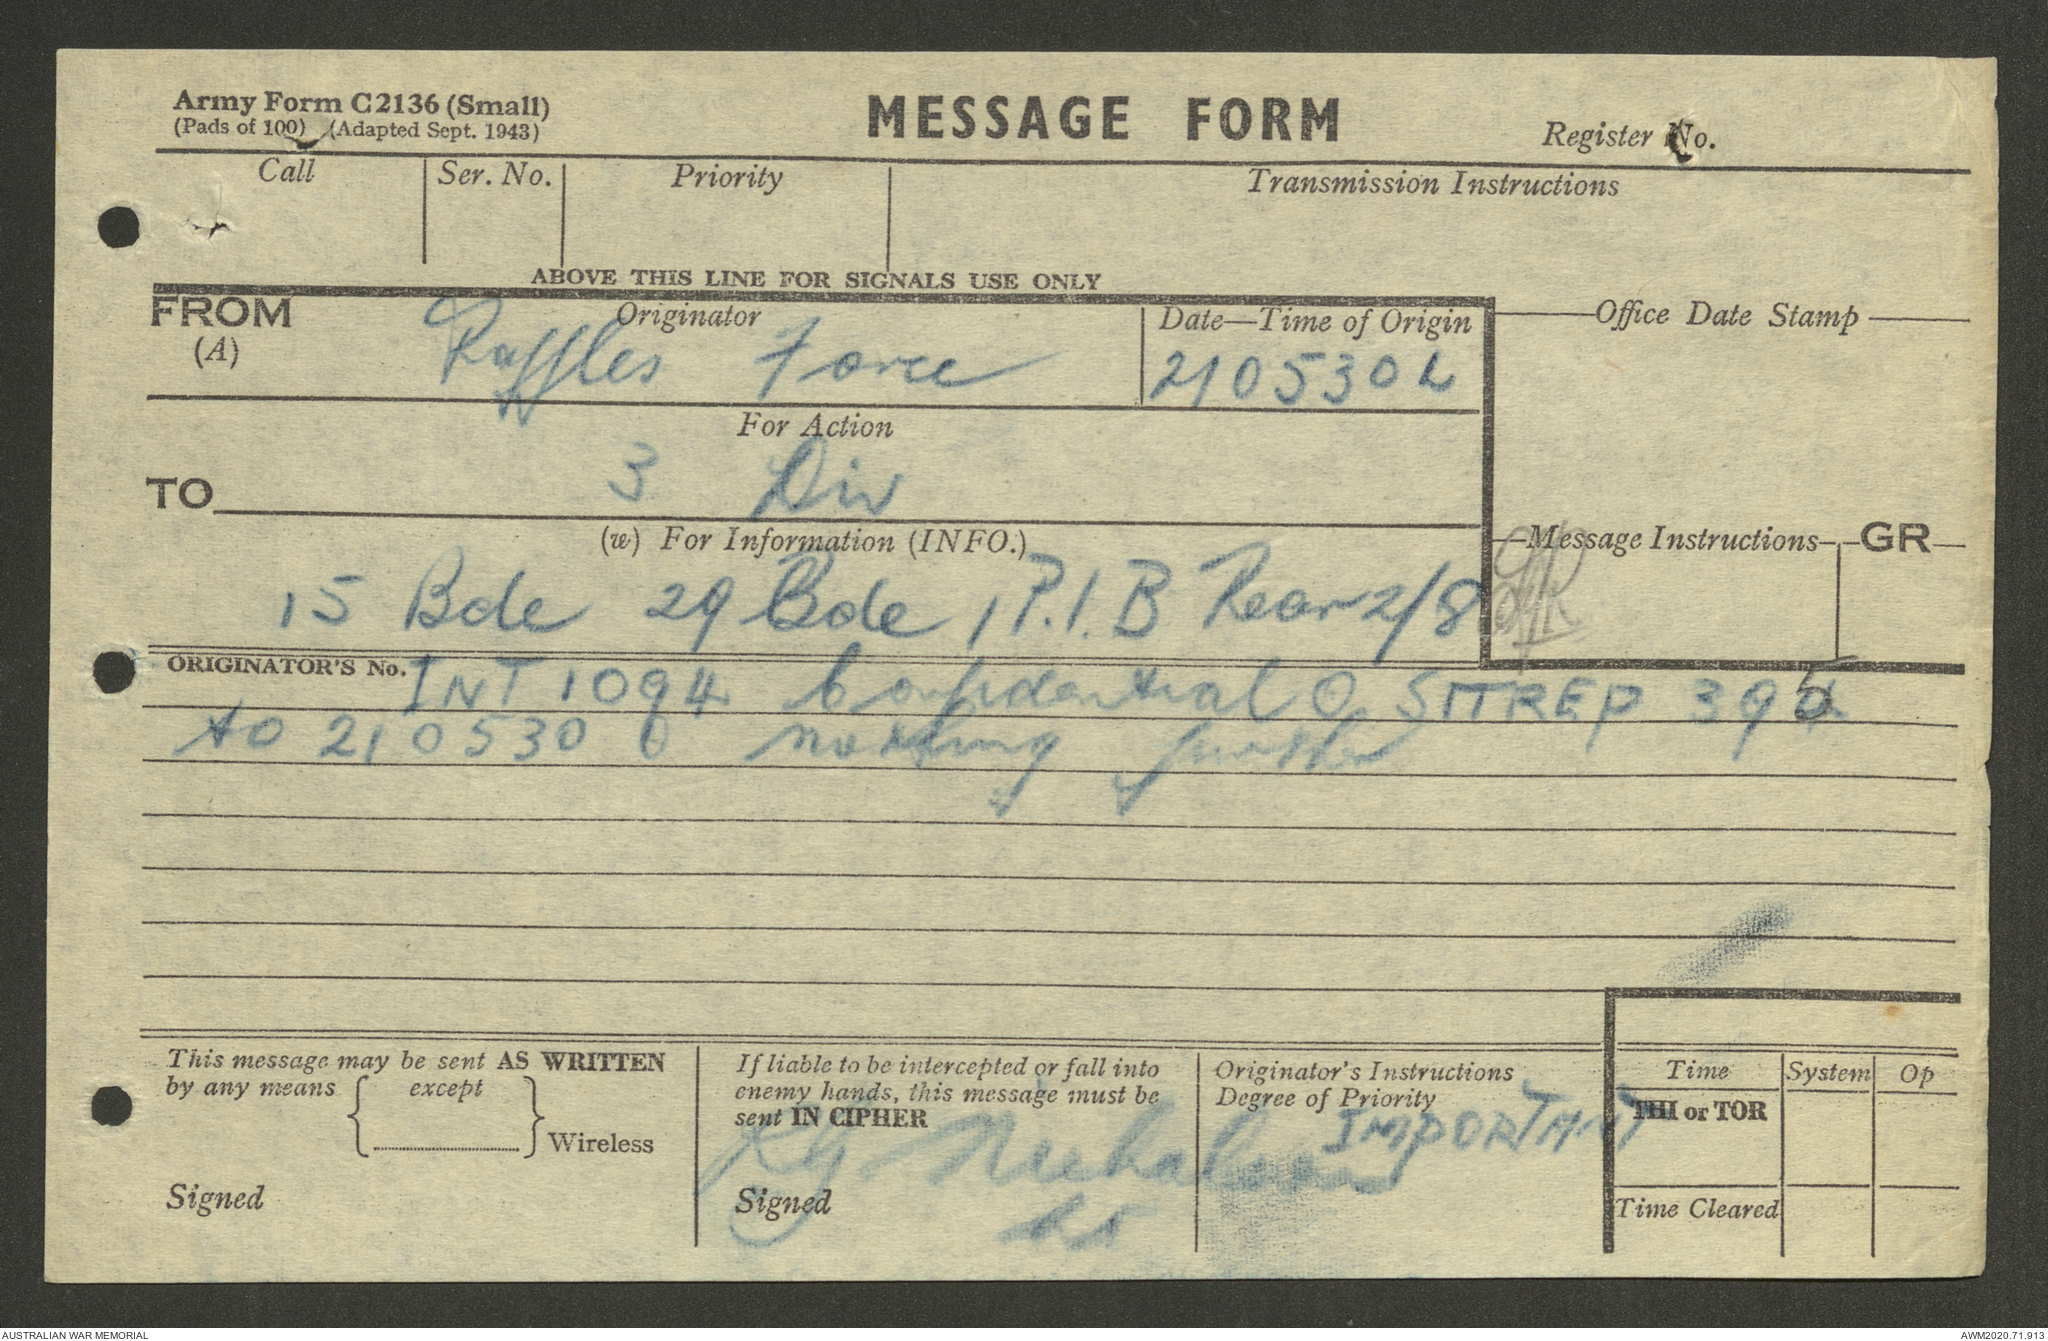 Army Form C2136 (Small)
(Pads of 100) (Adapted Sept. 1943)
MESSAGE FORM
Register No.
Call
Ser. No.
Priority
Transmission Instructions
ABOVE THIS LINE FOR SIGNALS USE ONLY
FROM
(A)
Originator
Raffles Force
Date—Time of Origin
210530L
Office Date Stamp
For Action
TO
3 Div
(w) For Information (INFO.)
15 Bde 29 Bde 1 P.I.B Rear 2/8
Message Instructions
GR
ORIGINATOR'S No. INT 1094 Confidential O SITREP 395
to 210530 O nothing further
This message may be sent AS WRITTEN
by any means except
Wireless
Signed
If liable to be intercepted or fall into
enemy hands, this message must be
sent IN CIPHER
Nicholson
Signed
Lt
Originator's Instructions
Degree of Priority
IMPORTANT
Time
System
Op
THI or TOR
Time Cleared
AUSTRALIAN WAR MEMORIAL
AWM2020.71.913